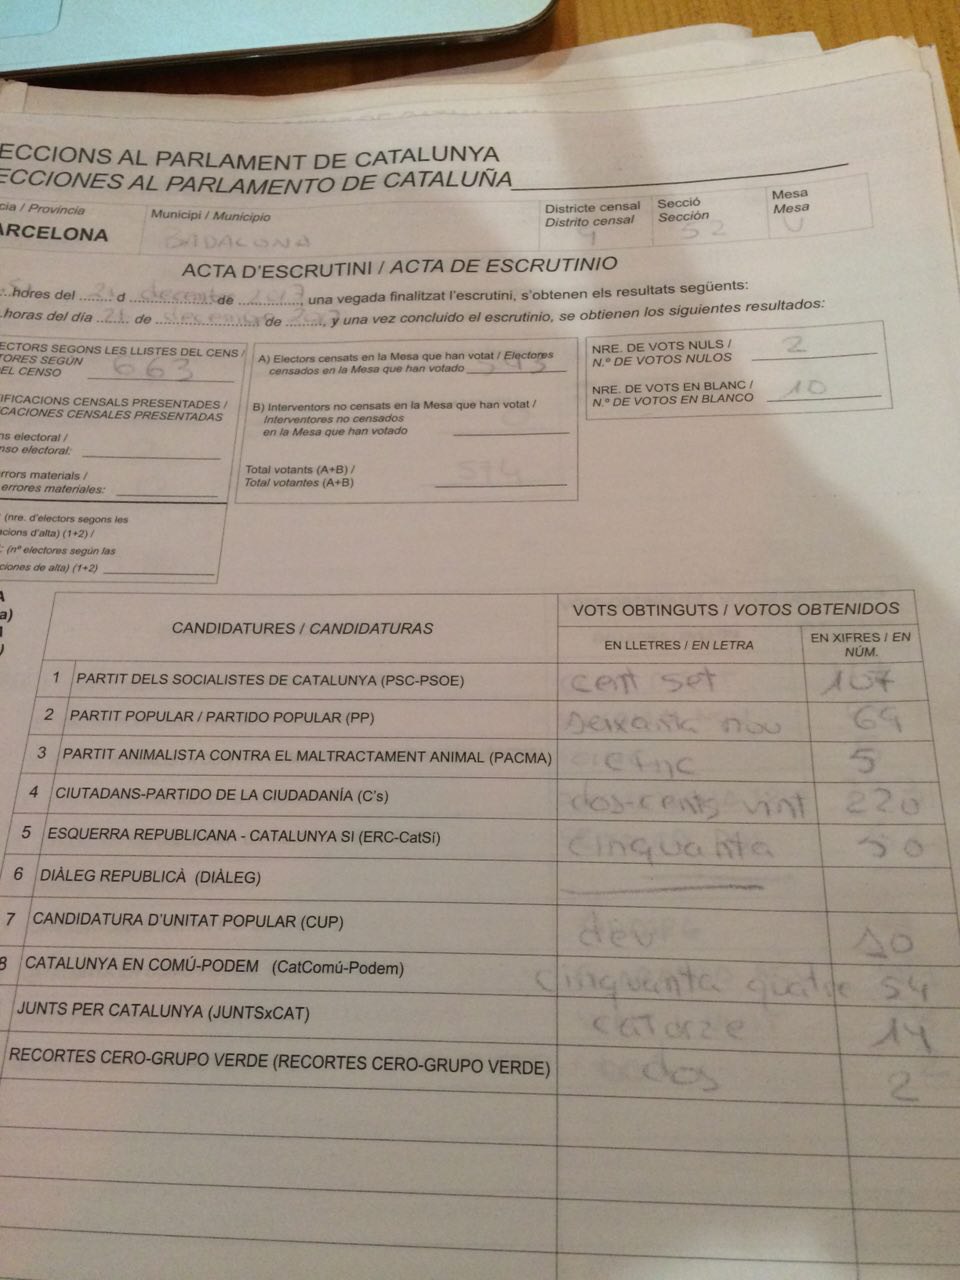 ECCIONS AL PARLAMENT DE CATALUNYA
ECCIONES AL PARLAMENTO DE CATALUÑA
cia / Província
ARCELONA
Municipi / Municipio
BADALONA
Districte censal
Distrito censal
Secció
Sección
52
Mesa
Mesa
U
ACTA D'ESCRUTINI / ACTA DE ESCRUTINIO
hores del 21 d desembre de 2017, una vegada finalitzat l'escrutini, s'obtenen els resultats següents:
horas del día 21 de de , y una vez concluido el escrutinio, se obtienen los siguientes resultados:
ECTORS SEGONS LES LLISTES DEL CENS /
TORES SEGÚN
EL CENSO 663
IFICACIONS CENSALS PRESENTADES /
CACIONES CENSALES PRESENTADAS
ns electoral /
nso electoral:
rrors materials /
errores materiales:
(nre. d'electors segons les
acions d'alta) (1+2) /
: (nº electores según las
ciones de alta) (1+2)
A) Electors censats en la Mesa que han votat / Electores
censados en la Mesa que han votado 543
B) Interventors no censats en la Mesa que han votat /
Interventores no censados
en la Mesa que han votado
Total votants (A+B) /
Total votantes (A+B)
NRE. DE VOTS NULS /
N.º DE VOTOS NULOS 2
NRE. DE VOTS EN BLANC /
N.º DE VOTOS EN BLANCO 10
CANDIDATURES / CANDIDATURAS
VOTS OBTINGUTS / VOTOS OBTENIDOS
EN LLETRES / EN LETRA
EN XIFRES / EN
NÚM.
1 PARTIT DELS SOCIALISTES DE CATALUNYA (PSC-PSOE) cent set 107
2 PARTIT POPULAR / PARTIDO POPULAR (PP) seixanta nou 69
3 PARTIT ANIMALISTA CONTRA EL MALTRACTAMENT ANIMAL (PACMA) cinc 5
4 CIUTADANS-PARTIDO DE LA CIUDADANÍA (C's) dos-cents vint 220
5 ESQUERRA REPUBLICANA - CATALUNYA SI (ERC-CatSí) cinquanta 50
6 DIÀLEG REPUBLICÀ (DIÀLEG)
7 CANDIDATURA D'UNITAT POPULAR (CUP) deu 10
8 CATALUNYA EN COMÚ-PODEM (CatComú-Podem) cinquanta quatre 54
JUNTS PER CATALUNYA (JUNTSxCAT) catorze 14
RECORTES CERO-GRUPO VERDE (RECORTES CERO-GRUPO VERDE) dos 2